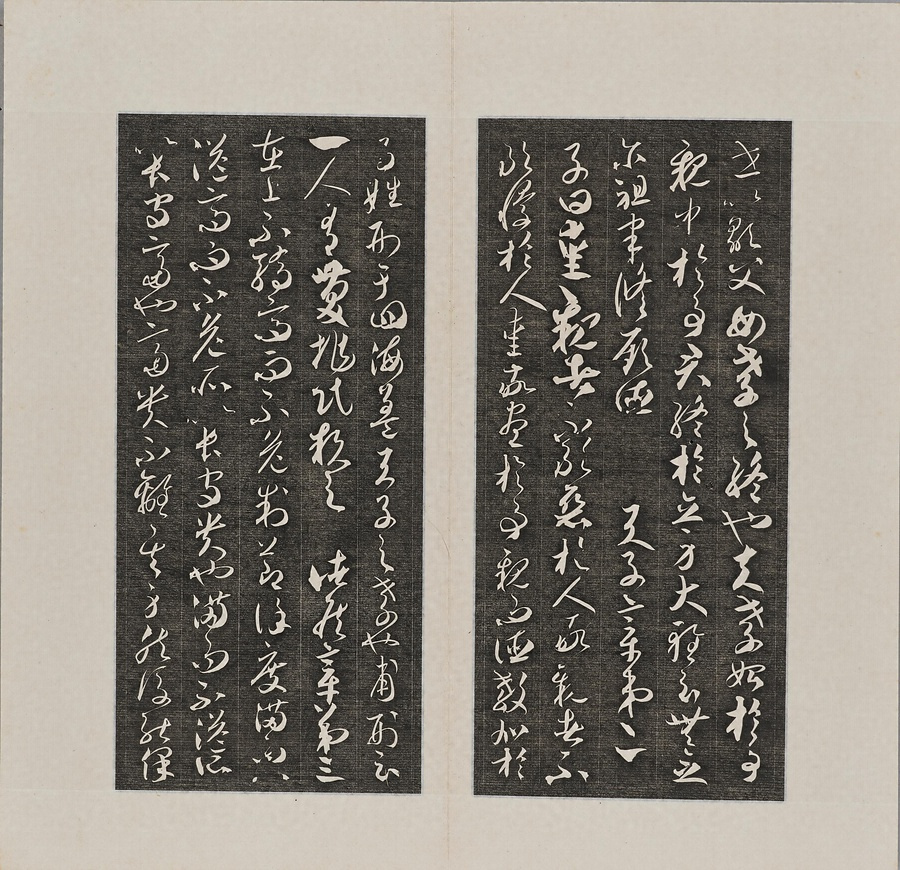 世以顯父母孝之終也夫孝始於事
親中於事君終於立身大雅云無念
尔祖聿脩厥德 天子章第二
子曰愛親者不敢惡於人敬親者不
敢慢於人愛敬盡於事親而德教加於
百姓刑于四海蓋天子之孝也甫刑云
一人有慶兆民賴之 諸侯章第三
在上不驕高而不危制節謹度滿而不
溢高而不危所以長守貴也滿而不溢所
以長守富也富貴不離其身然後能保